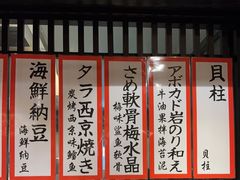 貝柱
貝柱
アボカド岩のり和え
牛油果拌海苔泥
さめ軟骨梅水晶
梅味鯊魚軟骨
タラ西京焼き
炭烤西京味鱈魚
海鮮納豆
海鮮納豆